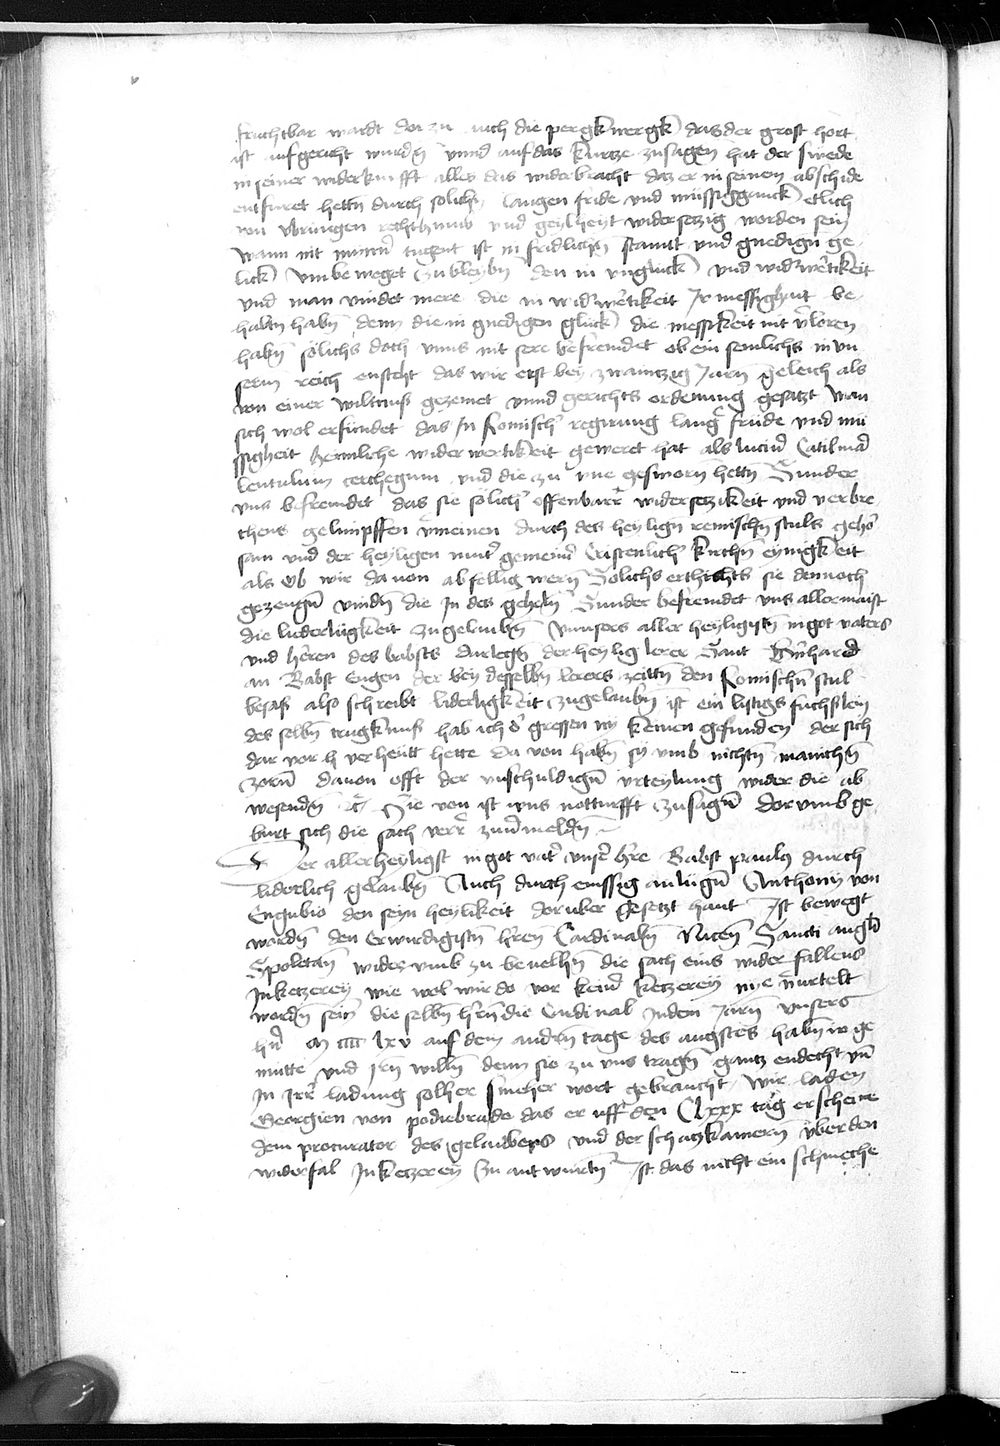 fruchtbar wardt dar zu auch die pergkwergk das der grost hort
ist aufgericht wurdn̄ vnnd auf das kurtze zusagen hat der friede
in seiner widerkunfft alles das widerbracht daz er in seinem abschide
entfuret hettn durch solichs langen fride vnd müssiggangk etlich
von vbrungen vnd geylheyt widersetzig worden sein
wann nit tugent ist in fridlichn̄ stannt vnd gnedign ge
lick vmbeweget zubleybn̄ den in vngluck vnd wid'wertikeit
vnd man vindet mere die in wid'wertikeit Ir messigkait be
haltn habn̄ denn die in gnedigen glück die messikeit nit v'loren
habn̄ sölichs doch vnns nit sere befremdet ob ein semlichs in vn
serm reich ensteht das wir erst bey zwaintzig Jarn geleich als
von einer wiltnuß gezemet vnnd gerichts ordenung gesatzt wan
sich wol erfindet das In Romisch' regirung lang' fride vnd mü
ssigkeit heimliche widerwertikeit geweret hat als luciu' Catilina'
lentulum cethegum vnd die zu ine gesworn hettn̄ Sunder
vns befremdet das sie sölich' offenbarr' widersetzikeit vnd verbre
chens gelimpffen v'meinen durch des heylign remischn̄ stuls gehor
sam vnd der heyligen mut' gemein' Cristenlich' kirchn̄ eynigkeit
als ob wir dauon abfellig wern̄ Solichs erthichts sie dennoch
gezeugn̄ vindn̄ die In des Sunder befremdet vns allermaist
die liederligkeit zugelaubn̄ vnnsers aller heyligistn̄ in got vaters
vnd h'ren des babsts der heylig lerer Sant Bernhard
an Babst Eugen der bey desselbn̄ lerers zeittn̄ den Romischn̄ stul
besaß also schreibt liderligkeit zugelaubn̄ ist ein listigs fuchslein
des selbn̄ trugknuß hab ich d' grossen nÿ keinen gefunden der sich
dar vor verhütt hette da von habn̄ sy vmb nichtn̄ manichn̄
zorn̄ dauon offt der vnschuldign̄ vrteylung wider die ab
wesendn̄ etc. Hie von ist vns notturfft zusagn̄ dor vmb ge
burt sich die sach zuu'meldn̄
Der allerheyligst in got vat' vns' h're Babst paulus durch
liderlich gelaubn̄ Auch durch emssig anlign̄ Anthonÿ von
Eugubio den seyn heylikeit doruber gesetzt haut Ist bewegt
wordn̄ den Erwirdigistn̄ h'ren Cardinaln̄ Nicen̄ Sancti angeli
Spoletan̄ wider vmb zu beuelhn̄ die sach eins wider fallens
In ketzereÿ wie wol wir do vor kein' ketzereÿ nye v'urtelt
wordn̄ sein die selbn̄ h'rn̄ die Cardinal In dem Jarn vnsers
h'n̄ M cccc lxv auf dem andn̄ tage des augstes habn̄ ir ge
mütte vnd irn willn̄ denn sie zu vns tragn̄ gantz endecht vn̄
In Irr' ladung solher smeher wort gebraucht wir laden
Georgien von podiebrado das er uff den Clxxx tag erscheine
dem procurator des gelawbens vnd der schatzkamern̄ vber den
widerfal In ketzereÿ zu antwurtn̄ Ist das nicht ein schmeche